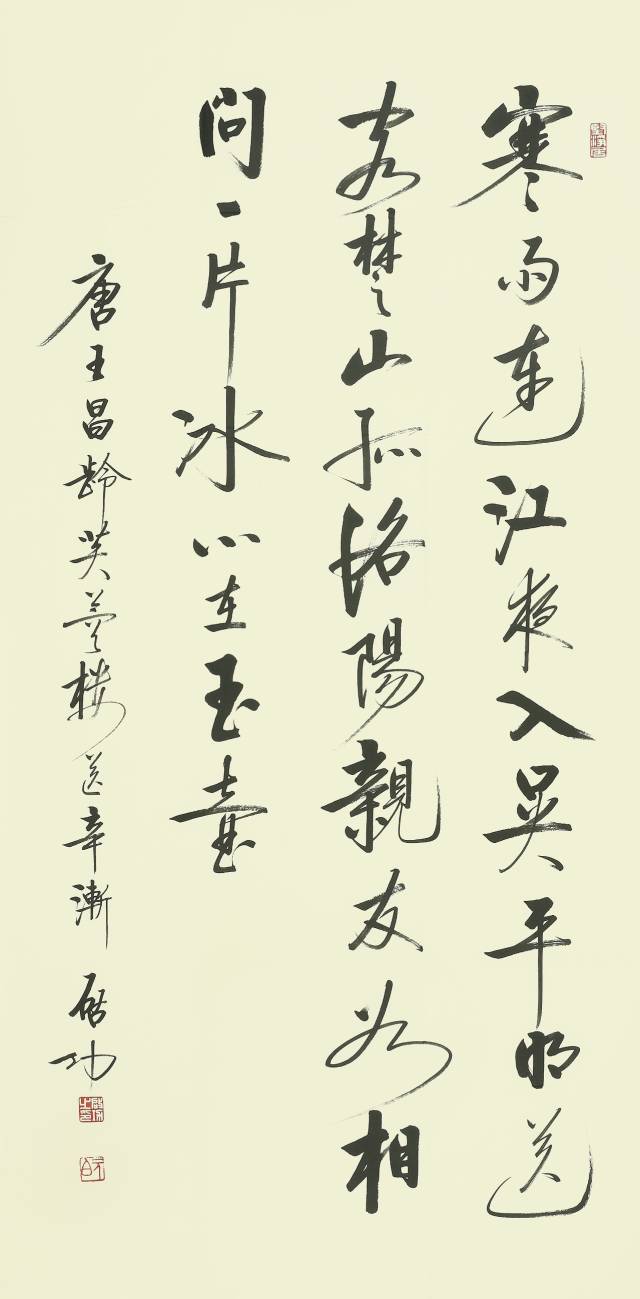 寒雨連江夜入吴平明送
客楚山孤洛陽親友如相
問一片冰心在玉壺
唐王昌齡芙蓉楼送辛漸 启功
元白